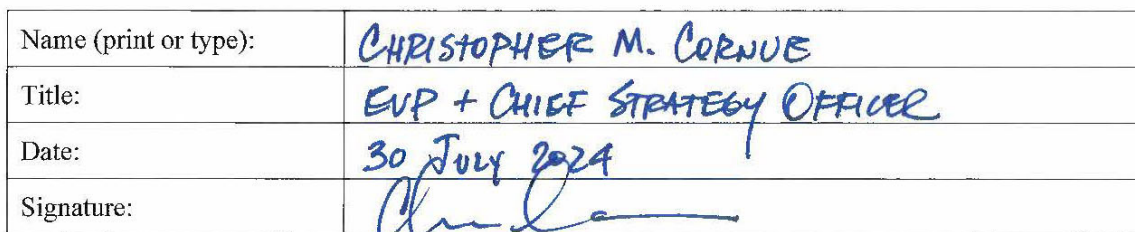 Name (print or type): CHRISTOPHER M. CORNUE
Title: EVP + CHIEF STRATEGY OFFICER
Date: 30 JULY 2024
Signature: